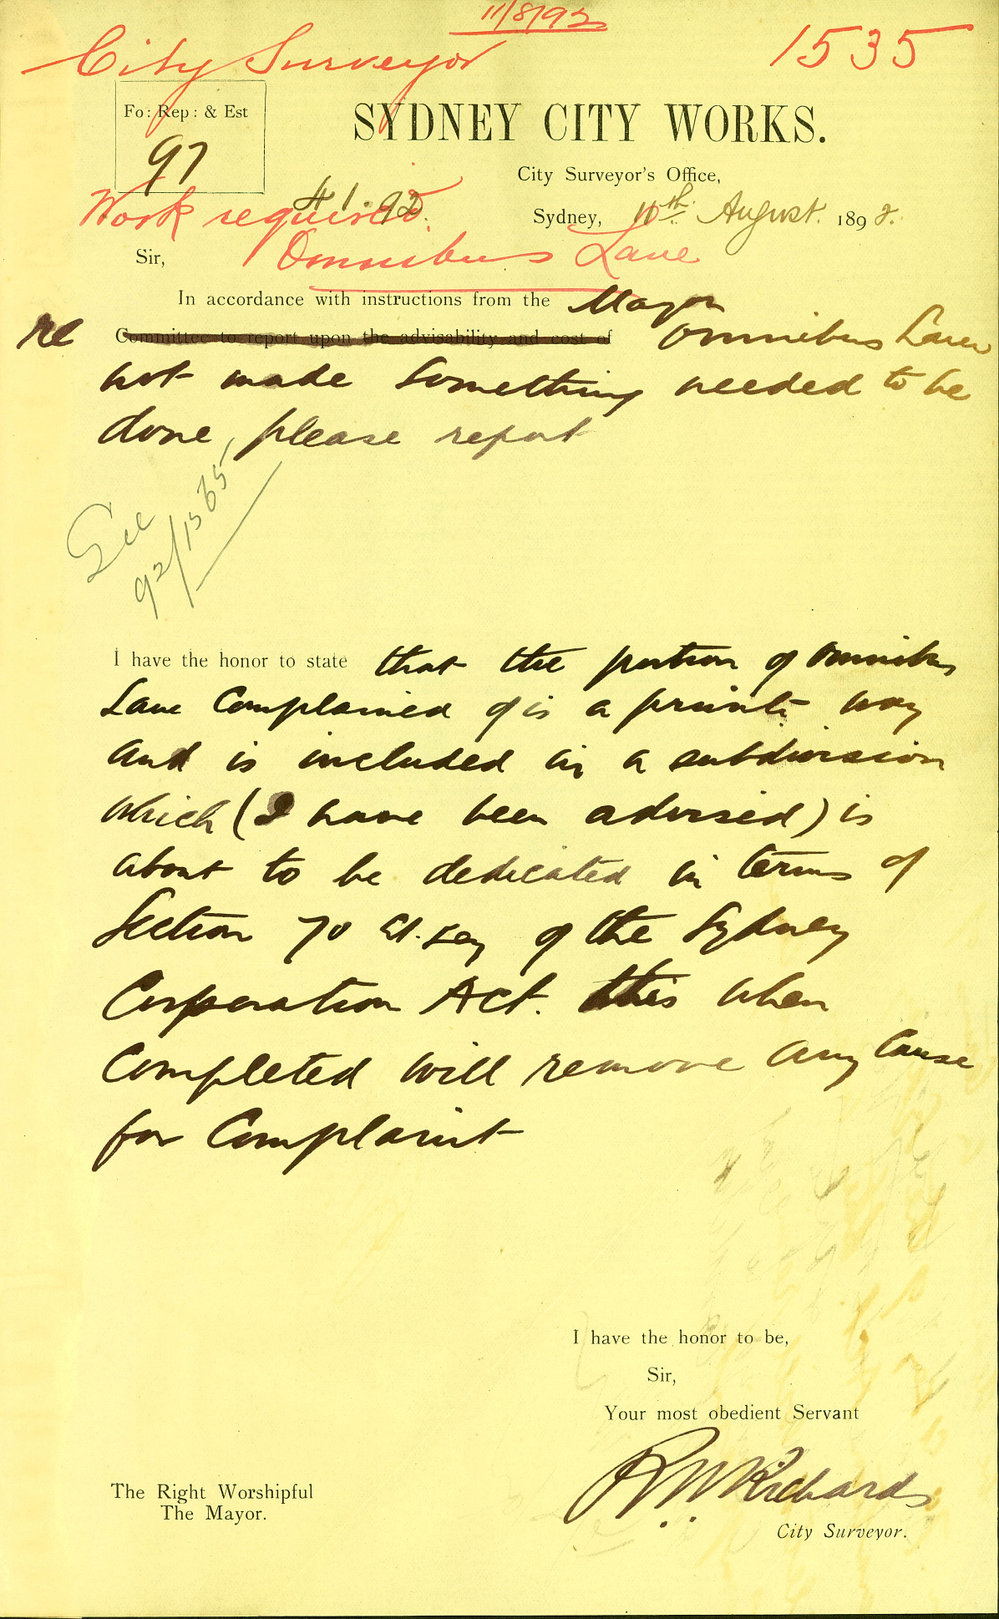 11/8/92
City Surveyor
1535
Fo: Rep: & Est
97
SYDNEY CITY WORKS.
City Surveyor's Office,
Work required
Sydney, 10th August 1892.
Omnibus Lane
Sir,
In accordance with instructions from the Mayor
re Committee to report upon the advisability and cost of Omnibus Lane
not made something needed to be
done, please report
See
92/1565
I have the honor to state that the portion of Omnibus
Lane Complained of is a private way
and is included in a subdivision
which (I have been advised) is
about to be dedicated in terms of
Section 70 of the Sydney
Corporation Act. this when
Completed will remove any Cause
for Complaint
I have the honor to be,
Sir,
Your most obedient Servant
R W Richards
City Surveyor.
The Right Worshipful
The Mayor.